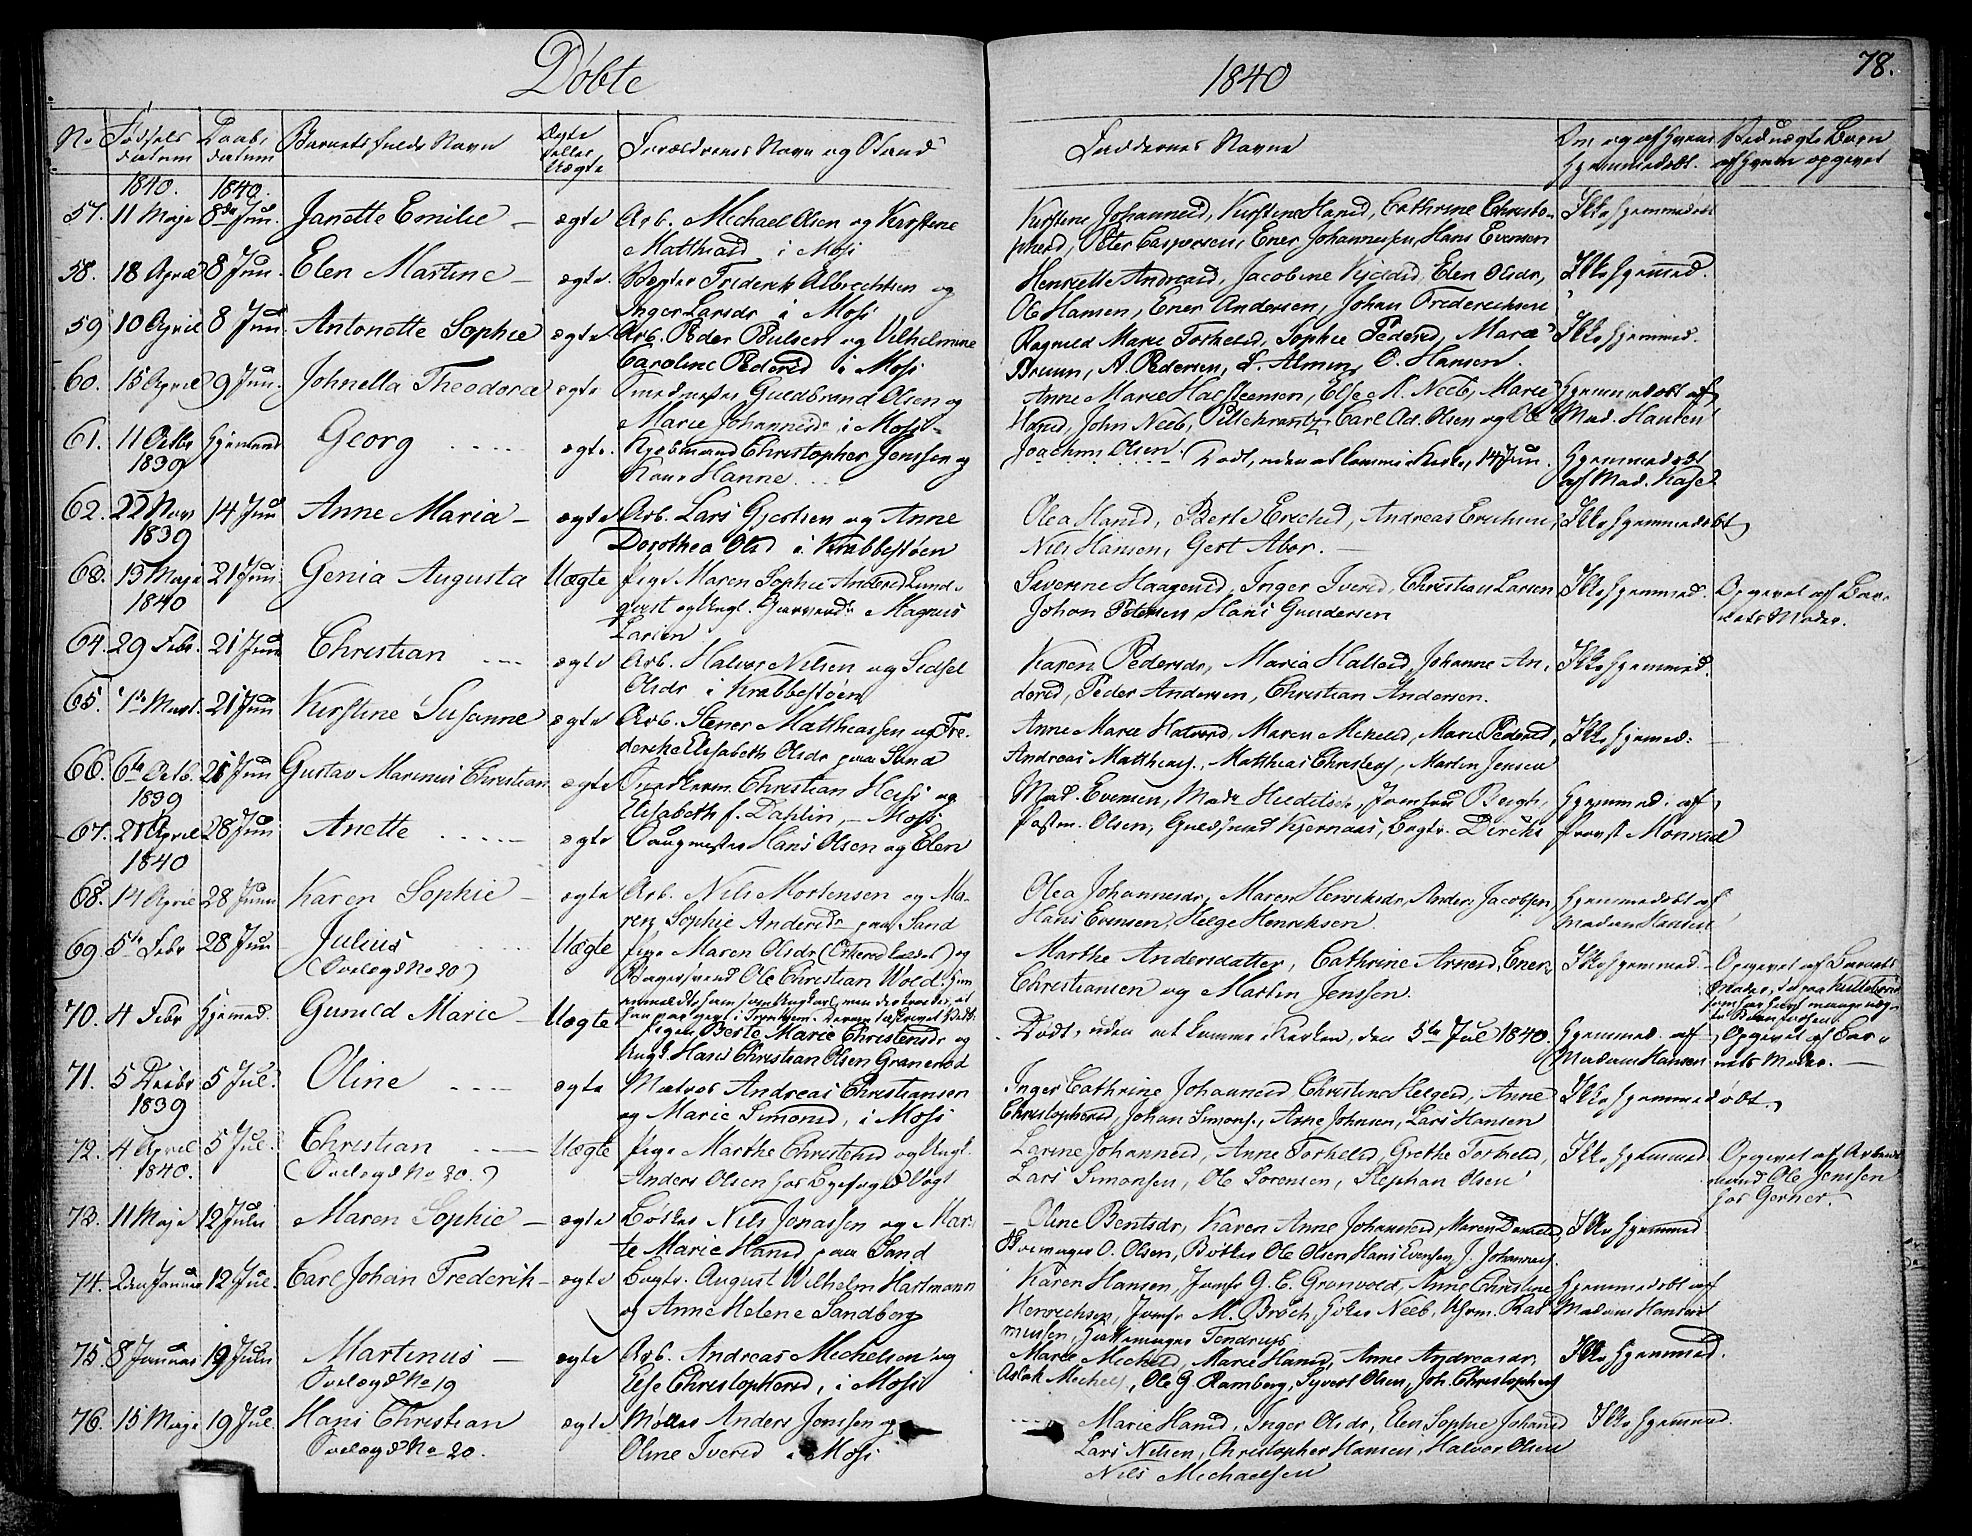 Döbte 1840 78.
No Födsels datum Daabs datum Barnets fulde Navn Ægte eller Uægte Forældrenes Navn og Stand Faddernes Navne
1840. 1840.
57. 11 Maje 8de Jun. Janette Emilie – ægte Arb. Michael Olsen og Kirstine Matthiasd i Moss Kirstine Johannesd, Kirstine Hansd, Cathrine Christo-
pherd, Peter Caspersen, Ener Johannesen, Hans Evensen Ikke hjemmedöbt
58. 18 April 8 Jun Elen Martine – ægte. Frederik Albrechtsen og Inger Larsdr i Moss Henriette Andreasd, Jacobine Elen Olsdr,
Ole Hansen, Ener Andersen, Johan Frederichsen Ikke hjemmed.
59 10 April 8 Jun Antonette Sophie ægte Arb. Peder Poulsen og Vilhelmine Caroline Pedersd i Moss Ragnild Marie Torkelsd, Sophie Pedersd, Marie
Bruun, A. Pedersen, L. Almin, O. Hansen Ikke hjemmed.
60. 15 April 9 Jun. Johnella Theodora ægte Guldbrand Olsen og Marie Johannesdr i Moss Anne Marie Halsteensen, Else M. Neeb, Marie
Hansd, John Neeb, Carl Ad. Olsen og Ole
Joachim Olsen. Hjemmedöbt af Mad. Hansen
61. 11 Octbr 1839 Hjemmed Georg ægte. Kjöbmand Christopher Jenssen og Kone Hanne Död, uden at komme i Kirke, 14 Jun. Hjemmedöbt af Mad.
62. 22 Novr 1839 14 Jun Anne Maria – ægte Arb. Lars Gjertsen og Anne Dorothea Olsd i Krabbestöen Olea Hansd, Berte Erichsd, Andreas Erichsen,
Nils Hansen, Gert Abor. – Ikke hjemmedöbt
63. 15 Maje 1840 21 Jun. Genia Augusta Uægte Pige Maren Sophie Andersd Lund-
qvist og Ungk. Magnus Larsen Severine Haagensd, Inger Iversd, Christian Larsen
Johan Petersen, Hans Gundersen Ikke hjemmed. Opgivet af Bar-
nets Moder.
64. 29 Febr. 21 Jun Christian ægte Arb. Halvor Nilsen og Sidsel Olsdr i Krabbestöen Karen Pedersdr, Maria Hallesd, Johanne An-
dersd, Peder Andersen, Christian Andersen. Ikke hjemmed.
65. 1te Mart. 21 Jun Kirstine Susanne ægte Arb. Stener Matthiassen og Fre-
dericke Elisabeth Olsdr paa Sand Anne Marie Halvorsd, Maren Mikelsd, Marie Pedersd,
Andreas Matthias, Matthias Christens, Martin Jensen Ikke hjemmed:
66. 6te Octb. 1839 21 Jun Gustav Marinus Christian ægte Christian Heiss og Elisabeth f. Dahlin, – Moss Mad. Evensen, Jomfru Bergh,
Olsen, Dircks Hjemmed. af Provst Monrad
67. 21 April 1840 28 Jun Anette ægte Hans Olsen og Elen
68. 14 April 28 Juni Karen Sophie – ægte Arb. Nils Mortensen og Ma-
ren Sophie Andersdr paa Sand Olea Johannesdr, Maren Henriksdr, Anders Jacobsen,
Hans Evensen, Helge Henriksen. Hjemmedöbt af Madam Hansen
69 5te Febr 28 Jun Julius (Ovelægd No 20) Uægte Pige Maren Olsdr og
Ole Christian Wold Marthe Andersdatter, Cathrine Arnesd, Ener
Christiansen og Martin Jenssen. Ikke hjemmed. Opgivet af Barnets Moder,
70. 4 Febr Hjemmed. Gunild Marie – Uægte Pigen Berte Marie Christensdr og
Ungk. Hans Christian Olsen Graneröd Död, uden at komme i Kirken, den 5te Jul 1840. Hjemmed. af Madam Hansen Opgivet af Bar-
nets Moder. –
71. 5 Decbr 1839 5 Jul. Oline ægte Matros Andreas Christiansen
og Marie Simonsd, i Moss Inger Cathrine Johannesd, Christine Helgesd, Anne
Christophersd, Johan Simons., Arne Johnsen, Lars Hansen Ikke hjemmedöbt.
72. 4 April 1840. 5 Jul. Christian (Ovelægd No 20.) Uægte Pige Marthe Christensd og Ungk.
Anders Olsen hos Byefoged Vogt Larine Johannesd, Anne Torkelsd, Grethe Torkelsd,
Lars Simonsen, Ole Sörensen, Stephan Olsen Ikke hjemmed Opgivet af Arbeids-
mand Ole Jenssen
hos Gerner.
73. 11 Maje 12 Juli Maren Sophie – ægte Nils Jonassen og Mar-
te Marie Hansd, paa Sand – Oline Bentsdr, Karen Anne Johannesd, Maren Danielsd,
Skomager O. Olsen, Bödker Ole Olsen, Hans Evensen, J. Johannes. Ikke hjemmed
74. 2den Januar 12 Jul. Carl Johan Frederik – ægte August Wilhelm Hartmann
og Anne Helene Sandberg Karen Hansen, Jomfr G. E. Grönvold, Anne Christine
Henrichsen, Jomfr M. Broch, Neeb, Ras-
mussen, Hjemmedöbt af Madam Hansen
75. 8 Januar 19 Juli Martinus – Ovelægd No 19 ægte Arb. Andreas Michelsen og
Else Christophersd, i Moss Marie Michelsd, Marie Hansd, Anne Andreasdr,
Aslak Michels, Ole G. Ramberg, Syvert Olsen, Joh. Christophers Ikke hjemmed.
76. 15 Maje 19 Jul. Hans Christian Ovelægd No 20. ægte Möller Anders Jenssen og
Oline Iversd i Moss Marie Hansd, Inger Olsdr, Elen Sophie Johansd
Lars Nilsen, Christopher Hansen, Halvor Olsen
Nils Michaelsen Ikke hjemmed.